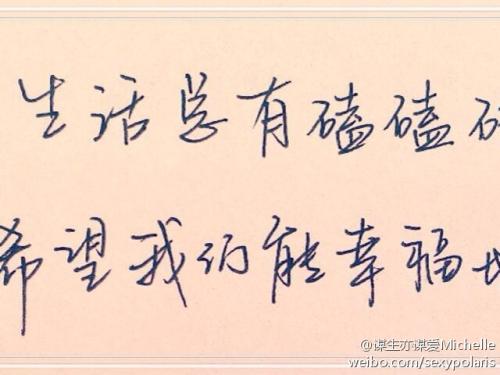 生活总有磕磕
希望我们能幸福
@谋生亦谋爱Michelle
weibo.com/sexypolaris